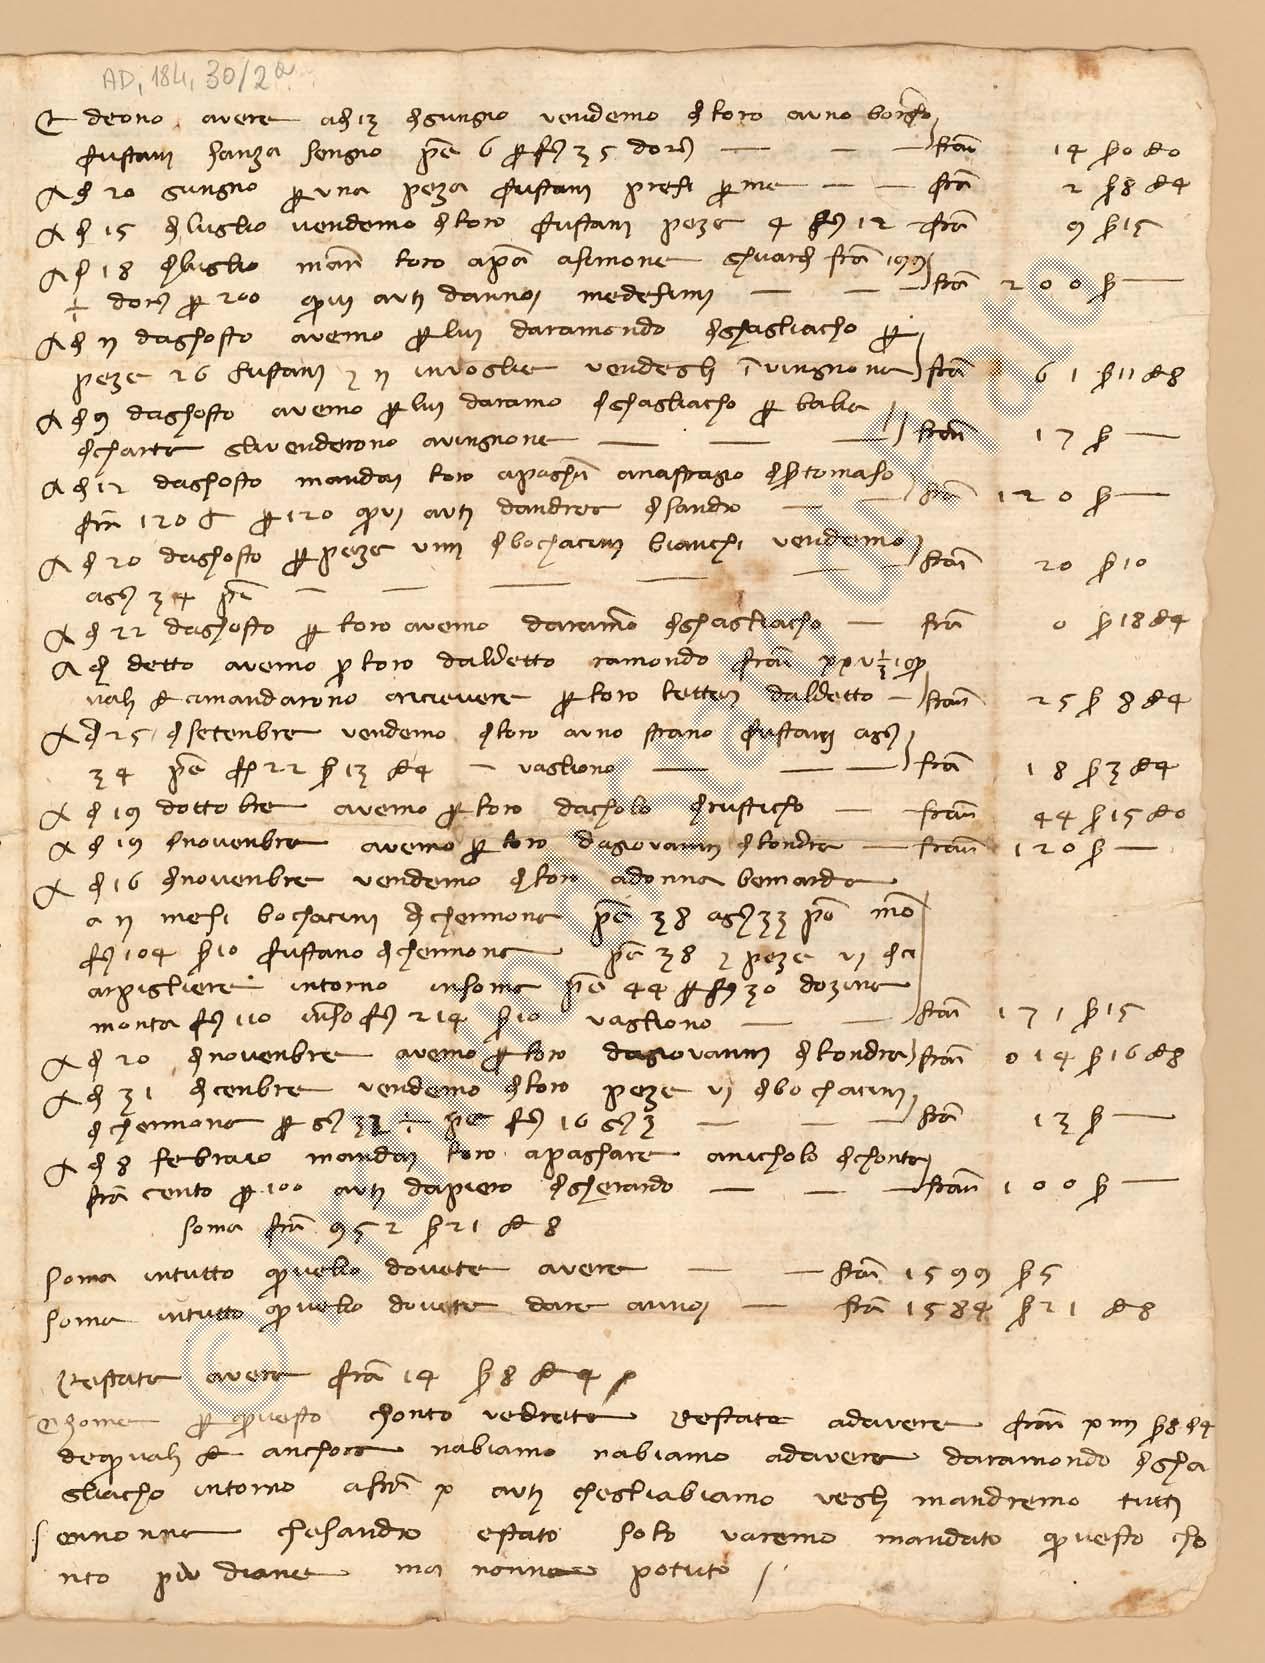 AD, 184, 30/2a
E deono avere a dì 13 di gungno vendemo di loro a uno
fustani sanza sengno pe 6 per f 35 doro — — — fran 14 s 0 d 0
A dì 20 gungno per una peza fustani presi per me — — fran 2 s 8 d 4
A dì 15 di luglio vendemo di loro fustani peze 4 f 12 — fran 9 s 15
A dì 18 di luglio man loro a pa a simone fran 199
doro per 200 qui auti da noi medesimi — — fran 200 s —
A dì 11 daghosto avemo per lui da ramondo di ghagliacho per
peze 26 fustani 2 11 invoglie vendegli in vingnone fran 61 s 11 d 8
A dì 9 daghosto avemo per lui da ramo di ghagliacho per balle
di charte gli venderono a vingnone — — — fran 17 s —
A dì 12 daghosto mandai loro a paghà a nastagio di s tomaso
fran 120 per 120 qui auti dandrea di sandro — fran 120 s —
A dì 20 daghosto per peze viiii di bochacini bianchi vendemo
a gs 34 pe — — — — — fran 20 s 10
A dì 22 daghosto per loro avemo da ramo di ghagliacho — fran 0 s 18 d 4
A dì detto avemo per loro dal detto ramondo fran xxv 1/3 i q
uali ci mandarono a ricievere per loro lettera dal detto — fran 25 s 8 d 4
A dì 25 di setenbre vendemo di loro a uno strano fustani a gs
34 pe f 22 s 13 d 4 — vagliono — — — fran 18 s 3 d 4
A dì 19 dottobre avemo per loro da cholo di rusticho — fran 44 s 15 d 0
A dì 19 novenbre avemo per loro da giovanni di londra — fran 120 s —
A dì 16 di novenbre vendemo di loro a donna bernarda
a 11 mesi bochacini di chermona pe 38 a gs 33 pe mo
f 104 s 10 fustano di chermona pe 38 2 peze vi di ci
arpigliere intorno in soma pe 44 per f 30 dozina
monta f 110 inso f 214 s 10 vagliono — — fran 171 s 15
A dì 20 di novenbre avemo per loro da giovanni di londra fran 014 s 16 d 8
A dì 31 dicenbre vendemo di loro peze vi di bochacini
di chermona per gs 32 pe f 16 gs 3 — — — fran 13 s —
A dì 8 febraio mandai loro a paghare a nicholo di chonte
fran cento per 100 auti da piero di gherardo — — — fran 100 s —
Soma fran 952 s 21 d 8
Soma in tutto quello dovete avere — — fran 1599 s 5
Soma in tutto quello dovete dare a noi — fran 1584 s 21 d 8
Restate avere fran 14 s 8 d 4
Chome per questo chonto vedrete restate ad avere fran xiiii s 8 d 4
de quali e anchora nabiamo nabiamo ad avere da ramondo di gha
gliacho intorno a fran x auti che gli abiamo vegli mandremo tutti
se nonne che sandro estato solo varemo mandato questo cho
nto piu diane ma nonna potuto
© Archivio di Stato di Prato